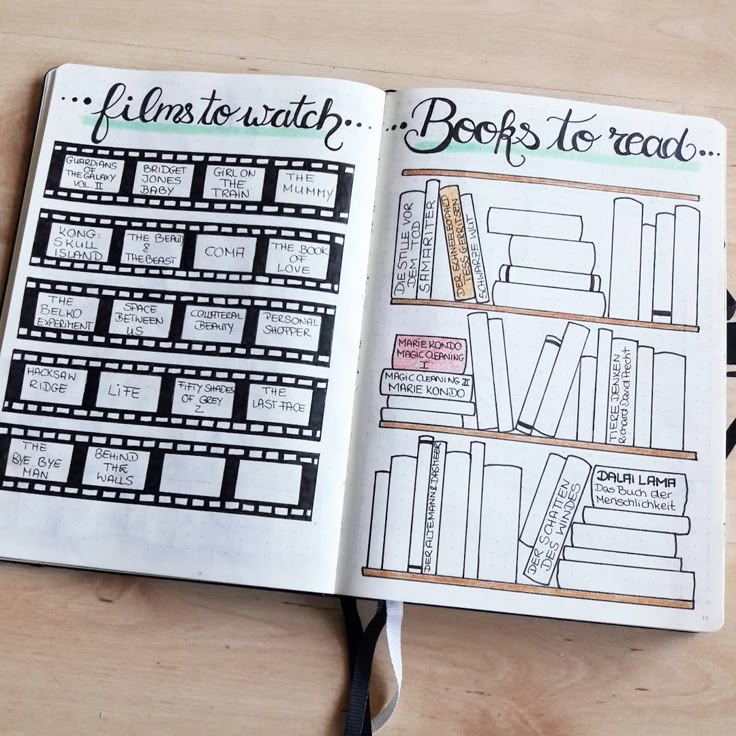 ...films to watch...
GUARDIANS
OF THE
GALAXY
VOL. II
BRIDGET
JONES
BABY
GIRL ON
THE
TRAIN
THE
MUMMY
KONG:
SKULL
ISLAND
THE BEAUTY
&
THE BEAST
COMA
THE BOOK
OF
LOVE
THE
BELKO
EXPERIMENT
SPACE
BETWEEN
US
COLLATERAL
BEAUTY
PERSONAL
SHOPPER
HACKSAW
RIDGE
LIFE
FIFTY SHADES
OF GREY
2
THE
LAST FACE
THE
BYE BYE
MAN
BEHIND
THE
WALLS
...Books to read...
DIE STILLE VOR
DEM TOD
SAMARITER
DER SCHNEELEOPARD
TESS GERRITSEN
SCHWARZE WUT
MARIE KONDO
MAGIC CLEANING
I
MAGIC CLEANING II
MARIE KONDO
TIERE DENKEN
Richard David Precht
DER ALTEMANN & DASMEER
DER SCHATTEN
DES WINDES
DALAI LAMA
Das Buch der
Menschlichkeit